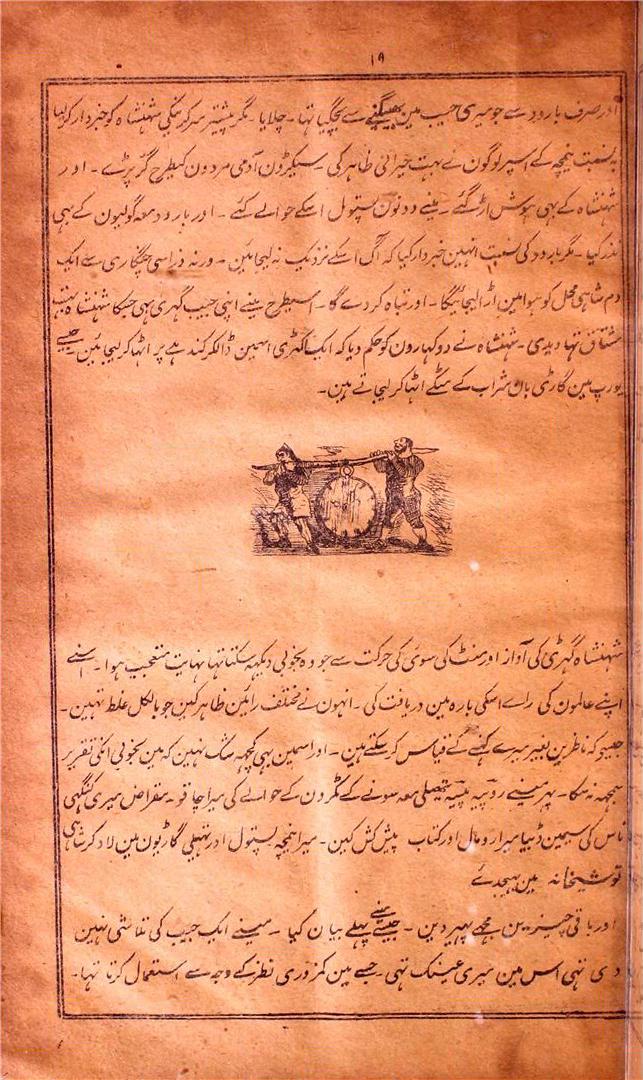 ١٩
اور صرف بارود سے جو میری جیب مین بھیگنے سے بچگیا تہا ۔ چلایا ۔ مگر پیشتر سر کرنیکی شہنشاہ کو خبردار کر لیا
بہ نسبت نیمچہ کے اسپر لوگون نے بہت حیرانی ظاہر کی ۔ سیکڑون آدمی مردون کیطرح گر پڑے ۔ اور
شہنشاہ کے بہی ہوش اڑ گئے ۔ مینے دونون پستول اسکے حوالے کئے ۔ اور بارود معہ گولیون کے بہی
نذر کیا ۔ مگر بارود کی نسبت انہین خبردار کیا کہ آگ اسکے نزدیک نہ لیجائین ۔ ورنہ ذراسی چنگاری سے ایک
دم شاہی محل کو ہوا مین اڑا لیجائیگا ۔ اور تباہ کر دے گا ۔ اسیطرح مینے اپنی جیب گہری بہی جسکا شہنشاہ بہت
مشتاق تہا دیدی ۔ شہنشاہ نے دو کہارون کو حکم دیا کہ ایک لکڑی اسمین ڈالکر کندہے پر اٹہا کر لیجائین ۔ جیسے
یورپ مین گاڑی بان شراب کے مٹکے اٹہا کر لیجاتے ہین ۔
شہنشاہ گہڑی کی آواز اور منٹ کی سوئی کی حرکت سے جو وہ بخوبی دیکہہ سکتا تہا نہایت متعجب ہوا ۔ اسنے
اپنے عالمون کی راے اسکی بارہ مین دریافت کی ۔ انہون نے مختلف رائین ظاہر کین جو بالکل غلط تہین ۔
جیسو کہ ناظرین بغیر میرے کہنے کے قیاس کر سکتے ہین ۔ اور اسمین بہی کچہہ شک نہین کہ مین بخوبی انکی تقریر
سمجہہ نہ سکا ۔ پہر مینے روپیہ پیسہ تہیلی معہ سونے کے ٹکڑون کے حوالے کی میرا چاقو ۔ مقراض میری کنگہی
ناس کی سیمین ڈبیا میرا رومال اور کتاب پیش کش کین ۔ میرا نیمچہ پستول اور تہیلی گاڑیون مین لاد کر شاہی
توشیخانہ مین بہیجدئے
اور باقی چیزین مجہے پہیر دین ۔ جیسے مینے پہلے بیان کیا ۔ مینے ایک جیب کی تلاشی نہین
دی تہی اس مین میری عینک تہی ۔ جسے مین کمزوری نظر کے وجہ سے استعمال کرتا تہا ۔